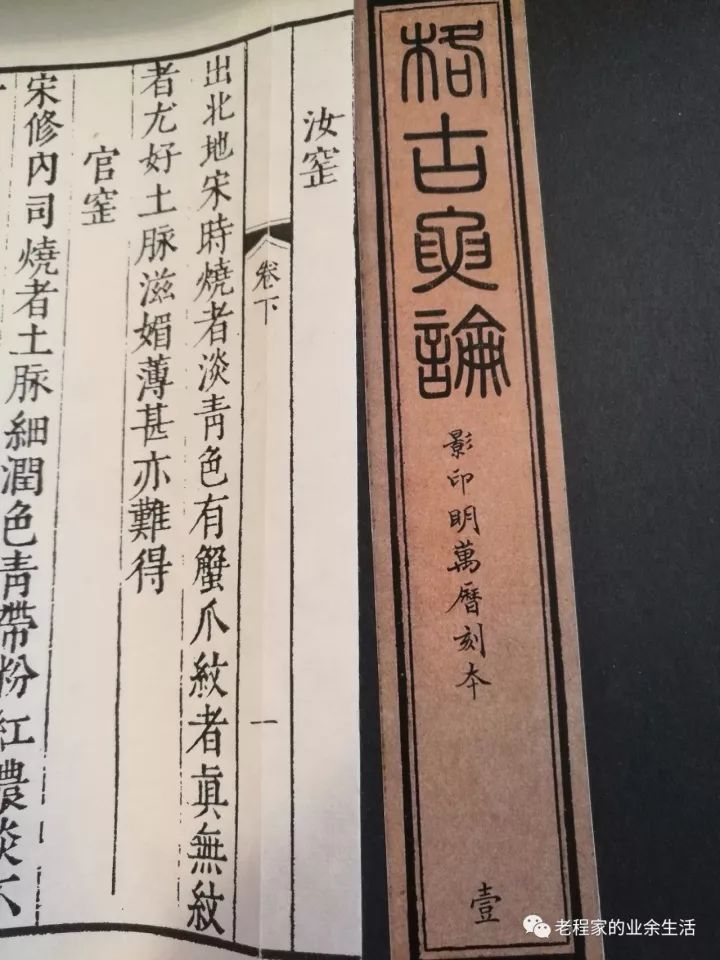 格古要論
影印明萬曆刻本
壹
汝窑
卷下
一
出北地宋時燒者淡青色有蟹爪紋者眞無紋
者尤好土脉滋媚薄甚亦難得
官窑
宋修内司燒者土脉細潤色青帶粉紅濃淡不
老程家的业余生活